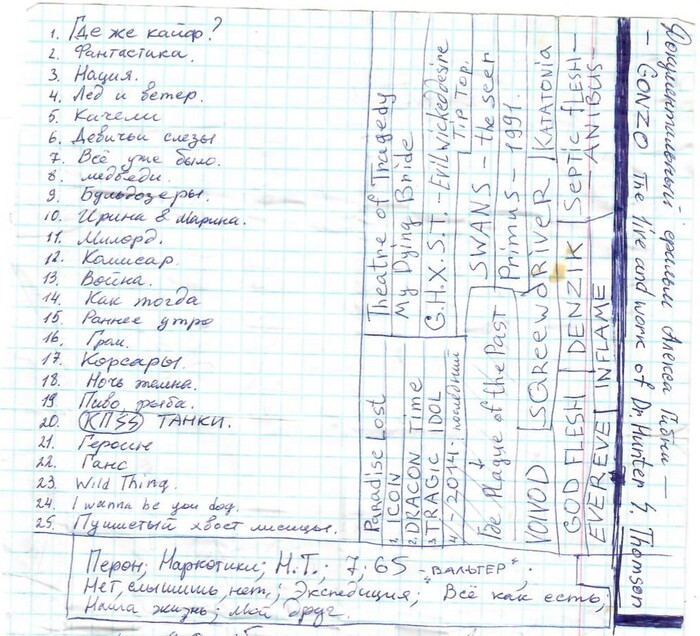 1. Где же кайф?
2. Фантастика.
3. Нация.
4. Лёд и ветер.
5. Качели
6. Девичьи слезы
7. Всё уже было.
8. медведи.
9. Бульдозеры.
10. Ирина & Марина.
11. Милорд.
12. Комисар.
13. Война.
14. Как тогда
15. Раннее утро
16. Гром.
17. Корсары.
18. Ночь темна.
19. Пиво рыба.
20. КПSS ТАНКИ.
21. Героин
22. Ганс
23. Wild Thing.
24. I wanna be you dog.
25. Пушистый хвост лисицы.
Theatre of Tragedy
My Dying Bride
G.H.X.S.T. - Evilwickeddesire
Tip Top.
SWANS - the seer
Primus - 1991.
SQreewORiveR
KATATONIA
DENZIK
SEPTIC FLESH -
ANIBUS
Paradise Lost
1. ICON
2. DRACON Time
3. TRAGIC IDOL
4. - /2014. последний
↓
The Plague of the Past
VOIVOD
GOD FLESH
EVEREVE
INFLAME
Документальный фильм Алекса Гибни —
— GONZO The life and work of Dr. Hunter S. Thomson
Перон; Наркотики; Н.Т.; 7,65 - "ВАЛЬТЕР".
Нет, слышишь, нет,; Экспедиция; Всё как есть;
Наша жизнь; Мой друг.